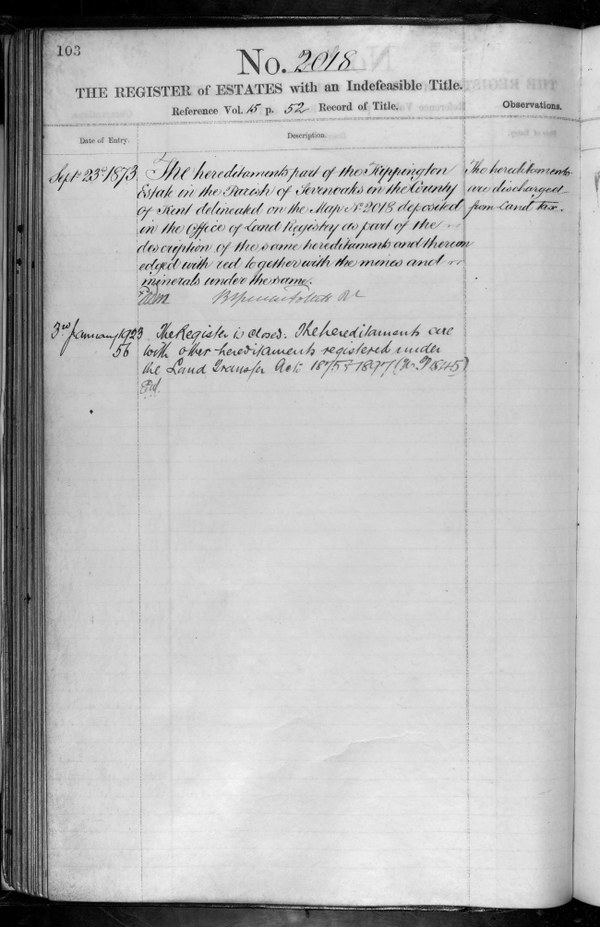 103
No. 2018
THE REGISTER of ESTATES with an Indefeasible Title.
Reference Vol. 15 p. 52 Record of Title.
Observations.
Date of Entry.
Description.
Septr 23d 1873
The hereditaments part of the Kippington
Estate in the Parish of Sevenoaks in the County
of Kent delineated on the Map No 2018 deposited
in the Office of Land Registry as part of the
description of the same hereditaments and thereon
edged with red together with the mines and
minerals under the same.
The hereditaments
are discharged
from Land Tax.
3rd January 1923
56
The Register is closed. The hereditaments are
with other hereditaments registered under
the Land Transfer Acts 1875 & 1897